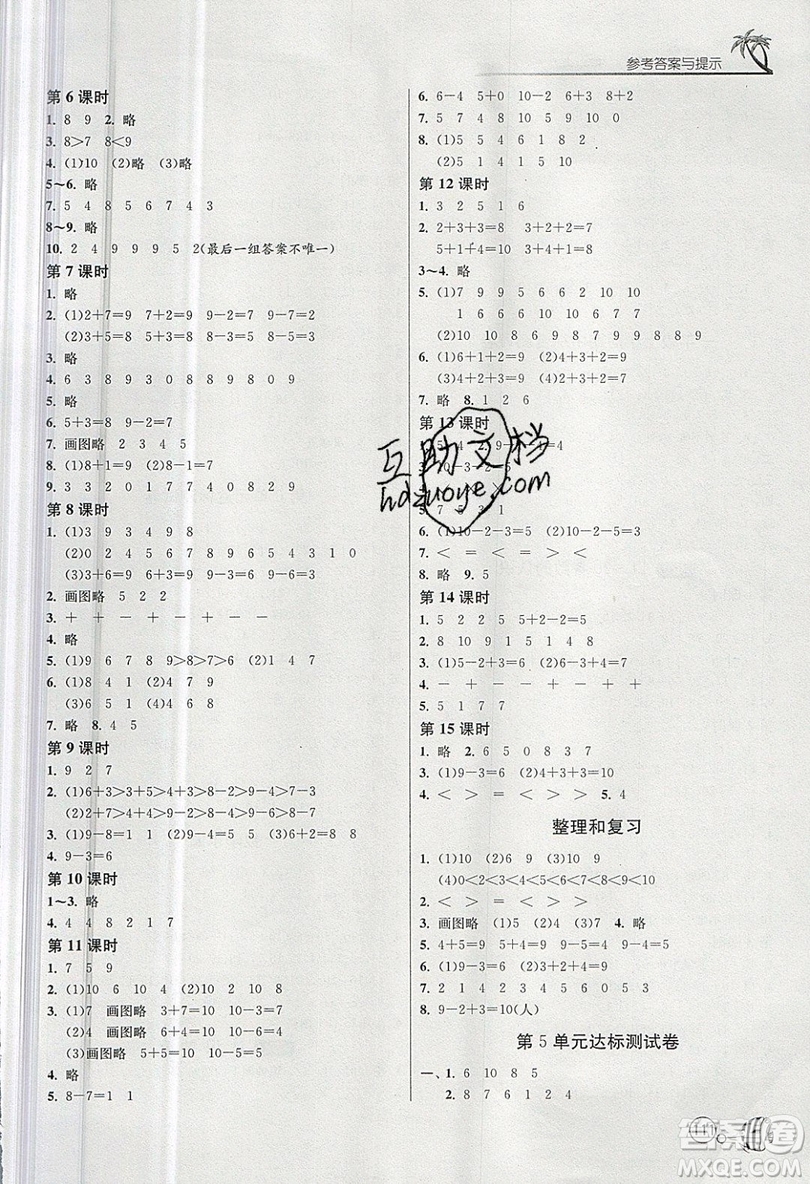 参考答案与提示
第 6 课时
1. 8 9 2. 略
3. 8>7 8<9
4. (1)10 (2)略 (3)略
5～6. 略
7. 5 4 8 5 6 7 4 3
8～9. 略
10. 2 4 9 9 9 5 2(最后一组答案不唯一)
第 7 课时
1. 略
2. (1)2+7=9 7+2=9 9-2=7 9-7=2
(2)3+5=8 5+3=8 8-3=5 8-5=3
3. 略
4. 6 3 8 9 3 0 8 8 9 8 0 9
5. 略
6. 5+3=8 9-2=7
7. 画图略 2 3 4 5
8. (1)8+1=9 (2)4+4=8
9. 3 3 2 0 1 7 7 4 0 8 0 1
第 8 课时
1. (1)3 9 3 4 9 8
(2)0 2 4 5 6 7 8 9 6 5 4 3 1 0
(3)3+6=9 6+3=9 9-3=6 9-6=3
2. 画图略 5 2 2
3. + + - + - + - -
4. 略
5. (1)9 6 7 8 9>8>7>6 (2)1 4 7
6. (1)8 1 (2)4 7 9
(3)6 5 (4)2 4 8
7. 略 8. 4 5
第 9 课时
1. 9 2 7
2. (1)6+3>3+5>4+3>8-2>9-4>7-3
(2)2+7>4+4>9-2>8-4>9-6>8-7
3. (1)9-8=1 1 (2)9-4=5 5 (3)6+2=8 8
4. 9-3=6
第 10 课时
1～3. 略
4. 4 4 8 2 1 7
第 11 课时
1. 7 5 9
2. (1)10 6 10 4 (2)10 2 10 8
3. (1)7 画图略 3+7=10 10-3=7
(2)4 画图略 6+4=10 10-6=4
(3)画图略 5+5=10 10-5=5
4. 略
5. 8-7=1 1
6. 6-4 5+0 10-2 6+3 8+2
7. 5 7 4 8 0 9
8. (1)5 5 4 6 1 8 2
(2)5 1 4 5 10 5
第 12 课时
1. 3 2 5 1 6
2. 2+3+3=8 3+2+2=7
5+1+4=10 4+3+1=8
3～4. 略
5. (1)7 9 9 5 6 6 2 10 10
1 6 6 6 10 6 7 7
(2)10 10 8 6 9 8 7 9 8 8 9
6. (1)6+1+2=9 (2)4+1+4=9
(3)4+2+3=9
7. 略 8. 1 2 6
第 13 课时
6. (1)10-2-3=5 (2)9-1-3=5
7. < = < = > <
8. 略 9. 5
第 14 课时
1. 5 2 2 5 5+2-2=5
2. 8 10 9 1 5 1 4 8
3. (1)5-2+3=6 (2)8-4+1=5
4. - + - - + - + +
5. 5 1 7 7
第 15 课时
1. 略 2. 6 5 0 8 3 7
3. (1)9-3=6 (2)4+3+3=10
4. < > = < > = 5. 4
整理和复习
1. (1)10 (2)6 9 (3)10 9
(4)0<2<3<4<5<6<7<8<9
2. < > = < > =
3. 画图略 (1)5 (2)4 (3)7 4. 略
5. 4+5=9 5+4=9 9-4=5 9-5=4
6. (1)10-5=5 (2)4+4+2=10
7. 2 1 4 3 5 6 7 8 9
8. 9-2+3=10(人)
第 5 单元达标测试卷
一、1. 6 10 8 5
2. 8 7 6 1 2 4
互助文档
hdzuoye.com
111
答案圈
MXQE.COM